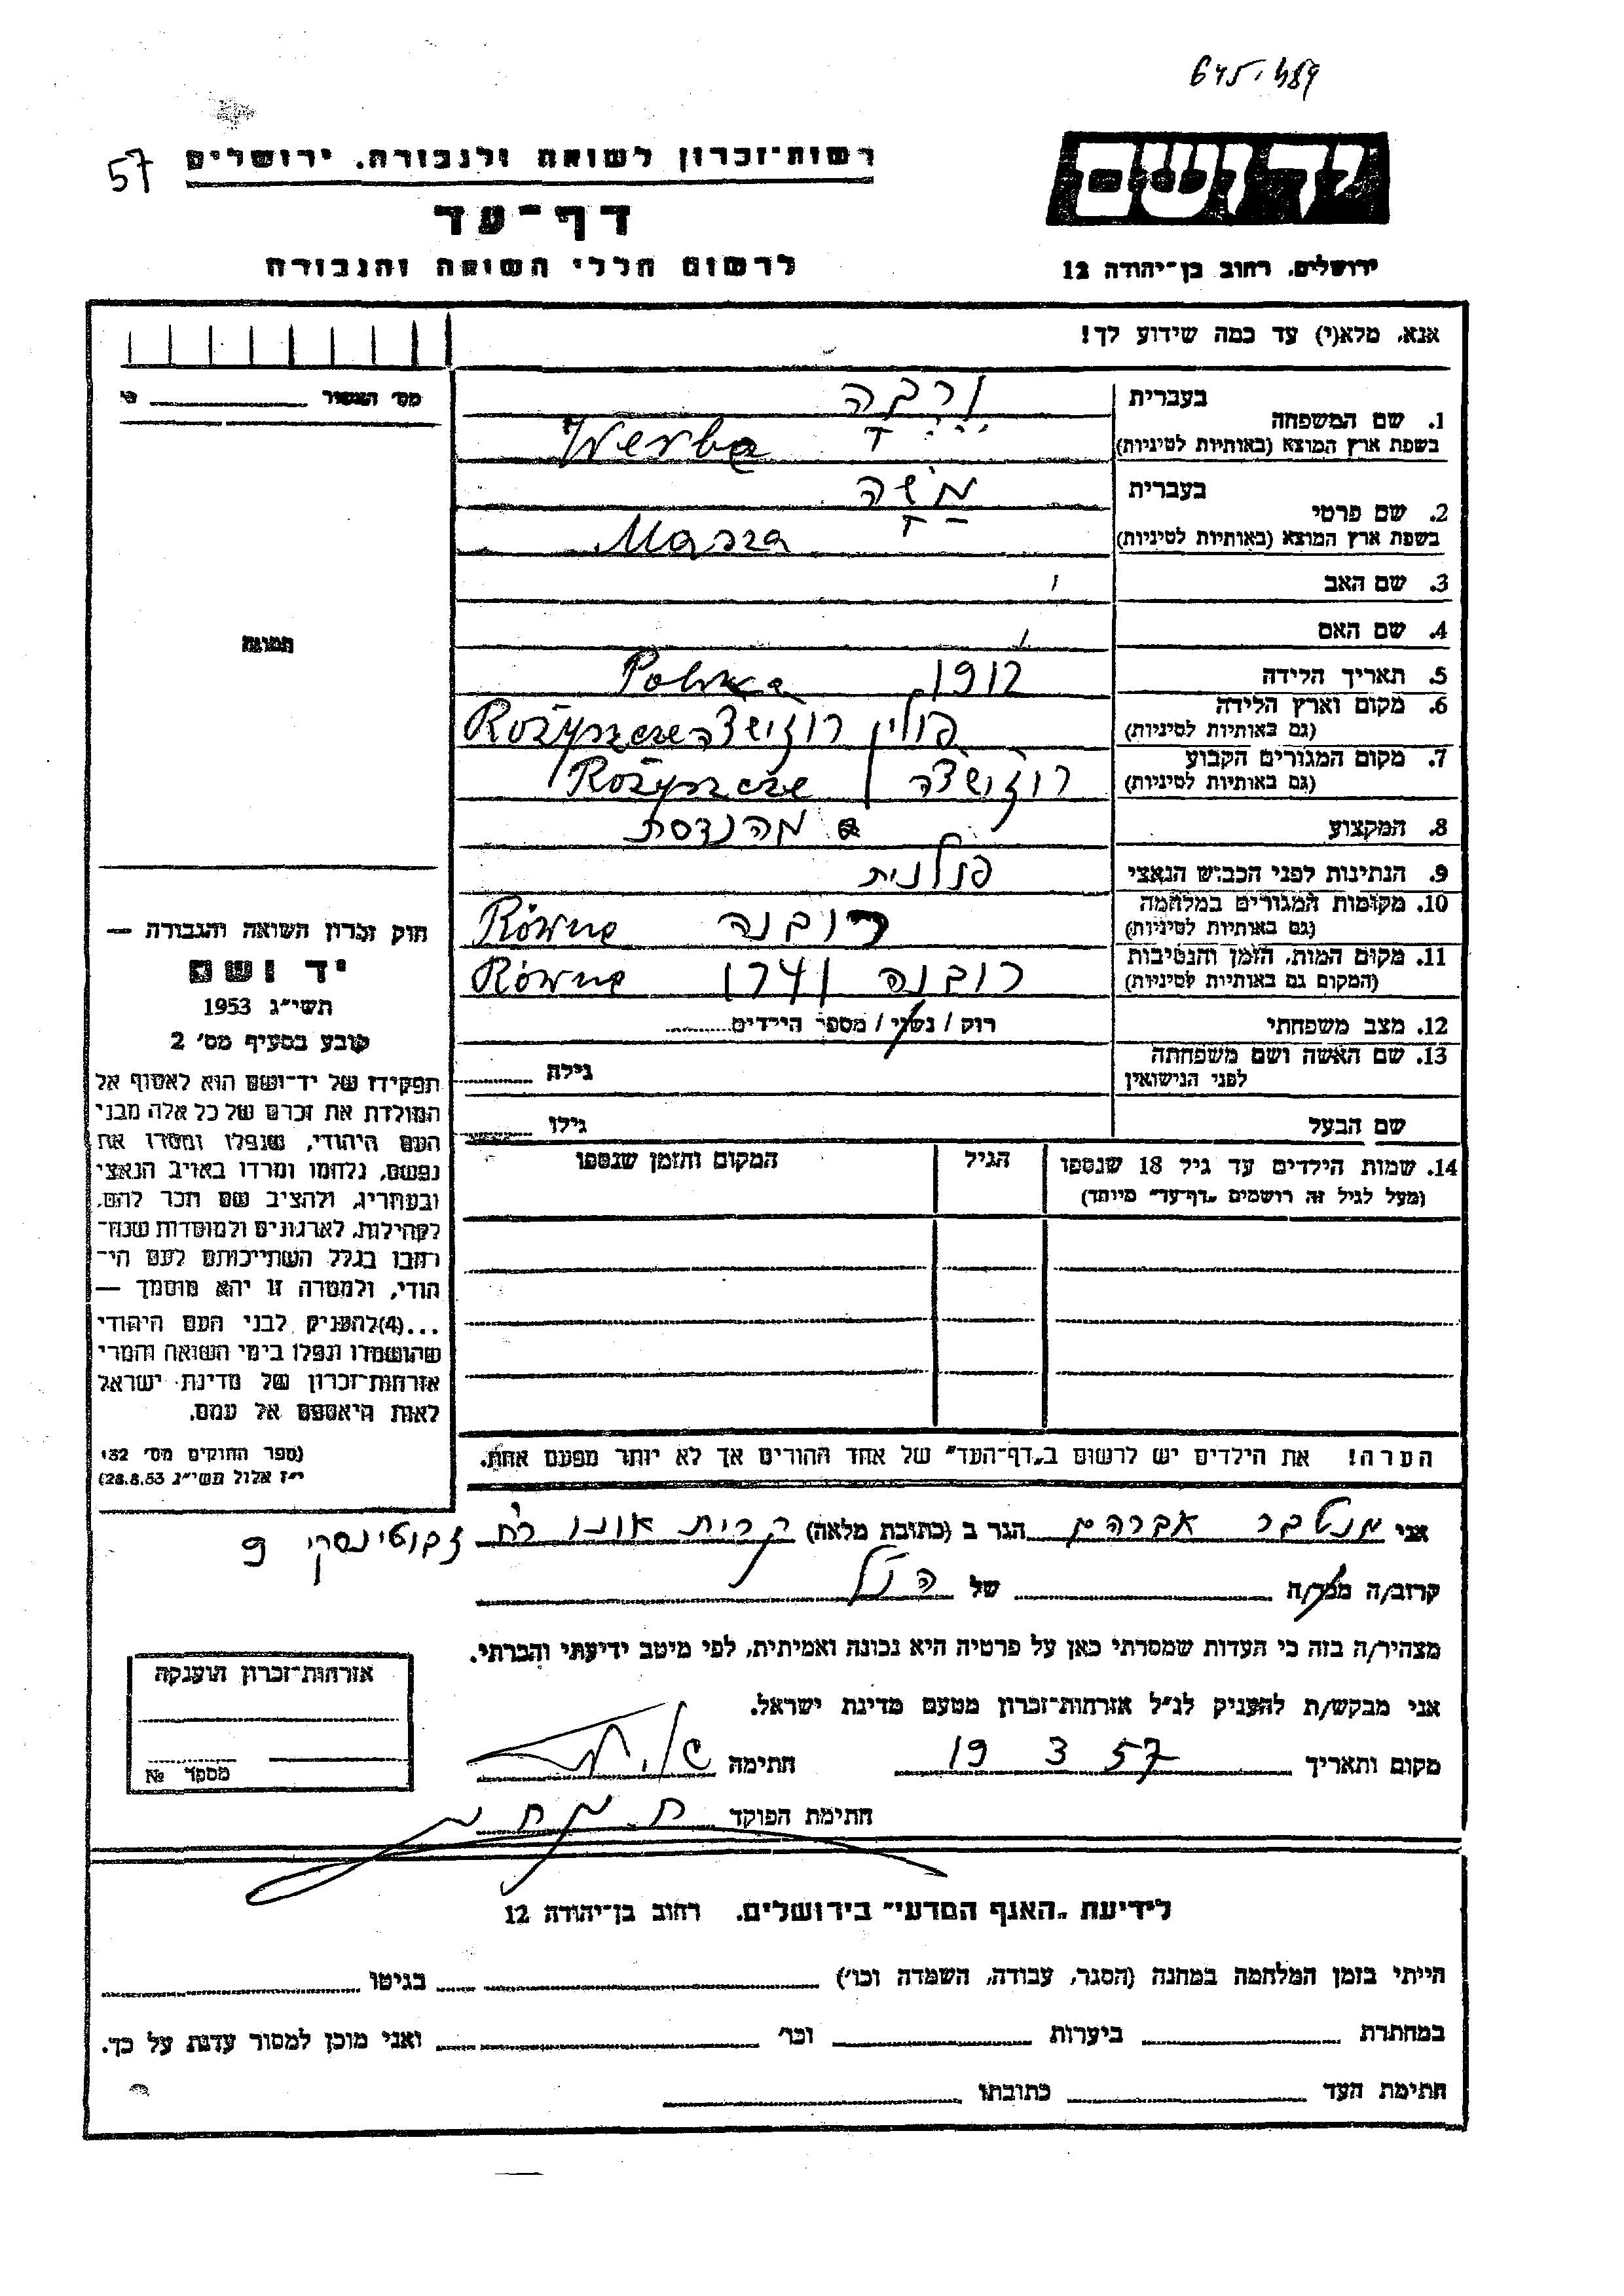 645.489
57
רשות־זכרון לשואה ולגבורה. ירושלים
דף־עד
לרשום חללי השואה והגבורה
יד ושם
ירושלים. רחוב בן־יהודה 12
אנא, מלא(י) עד כמה שידוע לך!
מס'
1. שם המשפחה
בעברית ורבה
בשפת ארץ המוצא (באותיות לטיניות) Werba
2. שם פרטי
בעברית משה
בשפת ארץ המוצא (באותיות לטיניות) Masza
3. שם האב
4. שם האם
תמונה
5. תאריך הלידה 1912 Polska
6. מקום וארץ הלידה פולין רוז'ישצ'ה Rożyszcze
(גם באותיות לטיניות)
7. מקום המגורים הקבוע רוז'ישצ'ה Rożyszcze
(גם באותיות לטיניות)
8. המקצוע מהנדסת
9. הנתינות לפני הכבוש הנאצי פולנית
10. מקומות המגורים במלחמה רובנה Równe
(גם באותיות לטיניות)
11. מקום המות, הזמן והנסיבות רובנה 1941 Równe
(המקום גם באותיות לטיניות)
12. מצב משפחתי רוק / נשוי / מספר הילדים
13. שם האשה ושם משפחתה
לפני הנישואין גילה
שם הבעל גילו
14. שמות הילדים עד גיל 18 שנספו הגיל המקום והזמן שנספו
(מעל לגיל זה רושמים „דף־עד" מיוחד)
הערה! את הילדים יש לרשום ב„דף־העד" של אחד ההורים אך לא יותר מפעם אחת.
חוק זכרון השואה והגבורה —
יד ושם
תשי"ג 1953
קובע בסעיף מס' 2
תפקידו של יד־ושם הוא לאסוף אל
המולדת את זכרם של כל אלה מבני
העם היהודי, שנפלו ומסרו את
נפשם, נלחמו ומרדו באויב הנאצי
ובעוזריו, ולהציב שם וזכר להם,
לקהילות, לארגונים ולמוסדות שנח־
רבו בגלל השתייכותם לעם הי־
הודי, ולמטרה זו יהא מוסמך —
...(4)להעניק לבני העם היהודי
שהושמדו ונפלו בימי השואה והמרי
אזרחות־זכרון של מדינת ישראל
לאות היאספם אל עמם.
(ספר החוקים מס' 132
י"ז אלול תשי"ג 28.8.53)
אני מנטבר אברהם הגר ב (כתובת מלאה) קרית אונו רח ז'בוטינסקי 9
קרוב/ה מכר/ה של הנ"ל
מצהיר/ה בזה כי העדות שמסרתי כאן על פרטיה היא נכונה ואמיתית, לפי מיטב ידיעתי והכרתי.
אני מבקש/ת להעניק לנ"ל אזרחות־זכרון מטעם מדינת ישראל.
מקום ותאריך 19 3 57 חתימה
חתימת הפוקד
אזרחות־זכרון הוענקה
מספר №
לידיעת „האגף המדעי" בירושלים. רחוב בן־יהודה 12
הייתי בזמן המלחמה במחנה (הסגר, עבודה, השמדה וכו') בגיטו
במחתרת ביערות וכו' ואני מוכן למסור עדות על כך.
חתימת העד כתובתו